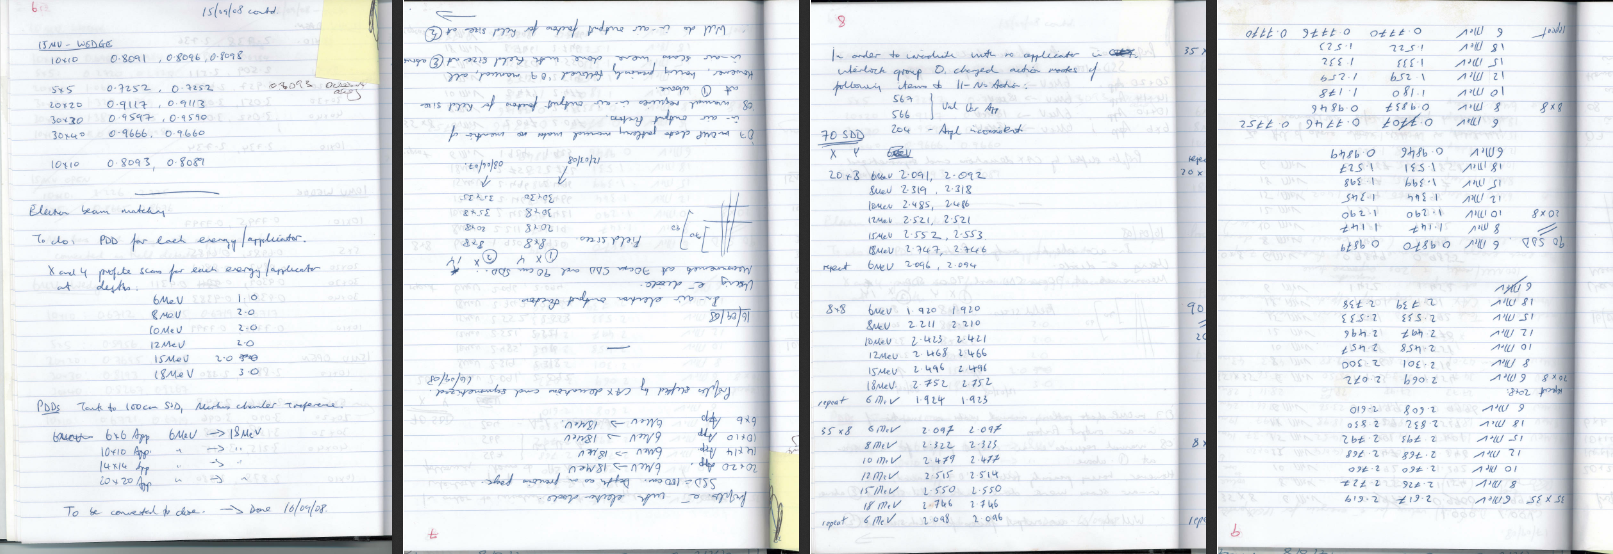 15/09/08 contd.
15MV - WEDGE
10x10 0.8091, 0.8096, 0.8098
5x5 0.7252, 0.7252
0.8093
20x20 0.9117, 0.9113
30x30 0.9597, 0.9590
30x40 0.9666, 0.9660
10x10 0.8093, 0.8089
Electron beam matching
To do: PDD for each energy/applicator.
X and Y profile scans for each energy/applicator
at depths.
6MeV 1.0
8MeV 2.0
10MeV 2.0
12MeV 2.0
15MeV 2.0
18MeV 3.0
PDDs Tank to 100cm SSD, Markus chamber
6x6 App 6MeV -> 18MeV
10x10 App. " -> "
14x14 App " -> "
20x20 App " -> "
To be converted to dose. -> Done 16/09/08
7
Profiles e- with electron diode.
SSD = 100cm. Depth as on previous page.
20x20 App. 6MeV -> 18MeV
14x14 App 6MeV -> 18MeV
10x10 App 6MeV -> 18MeV
6x6 App 6MeV -> 18MeV.
Profiles shifted by CAX deviation and symmetrised
16/09/08
16/09/08
In-air electron output factors
Using e- diode.
Measurements at 70cm SDD and 90cm SDD.
① X Y ② X Y
Field sizes: 8x8 8x8
20x8 20x20
30x8 35x8
30x30 35x35
12/07/08 08/04/07.
07 install data
in air output factors
08 manual requires in air output factors for field sizes
at ① above
However, being primarily followed '07 manual, all
in-air scans were done with field sizes at ②
∴ Will do in-air output factors for field sizes at ②
8
In order to irradiate with no applicator in
interlock group 0, changed action modes of
following items to 11-No Action.
567
566
204 - Appl inconsistent
70 SDD
X Y
20x8 6MeV 2.091, 2.092
8MeV 2.319, 2.318
10MeV 2.485, 2.486
12MeV 2.521, 2.521
15MeV 2.552, 2.553
18MeV 2.747, 2.746
repeat 6MeV 2.096, 2.094
8x8 6MeV 1.920 1.920
8MeV 2.211 2.210
10MeV 2.423 2.421
12MeV 2.468 2.466
15MeV 2.496 2.496
18MeV 2.752 2.752
repeat 6MeV 1.924 1.923
35x8 6MeV 2.097 2.097
8MeV 2.322 2.323
10MeV 2.479 2.477
12MeV 2.515 2.514
15MeV 2.550 2.550
18MeV 2.746 2.746
repeat 6MeV 2.098 2.096
9
35x35 6MeV 2.617 2.619
8MeV 2.726 2.727
10MeV 2.760 2.760
12MeV 2.768 2.768
15MeV 2.795 2.792
18MeV 2.832 2.830
6MeV 2.608 2.610
repeat
20x8 6MeV 2.069 2.072
8MeV 2.301 2.300
10MeV 2.458 2.457
12MeV 2.497 2.496
15MeV 2.533 2.533
18MeV 2.739 2.738
6MeV
90 SDD. 6MeV 0.9870 0.9879
20x8 8MeV 1.147 1.147
10MeV 1.290 1.290
12MeV 1.344 1.345
15MeV 1.399 1.398
18MeV 1.531 1.527
6MeV 0.9846 0.9849
6MeV 0.7707 0.7746 0.7752
8x8 8MeV 0.9837 0.9846
10MeV 1.180 1.178
12MeV 1.259 1.259
15MeV 1.333 1.332
18MeV 1.522 1.523
repeat 6MeV 0.7770 0.7776 0.7770